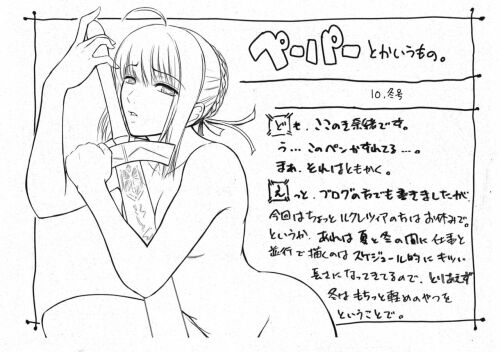 ペーパーとかいうもの。
10.冬号
ども。ここのき奈緒です。
う…このペンかすれてる…。
まぁ、それはともかく。
えっと、ブログの方でも書きましたが
今回はちょっとルクレツィアの方はお休みで。
というか、あれは夏と冬の間に仕事と
並行で描くのはスケジュール的にキツい
長さになってきてるので、とりあえず
冬はもちっと軽めのやつを
ということで。